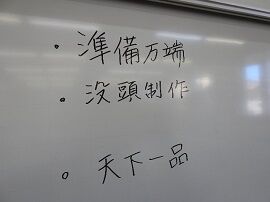 ・準備万端
・没頭制作
。天下一品